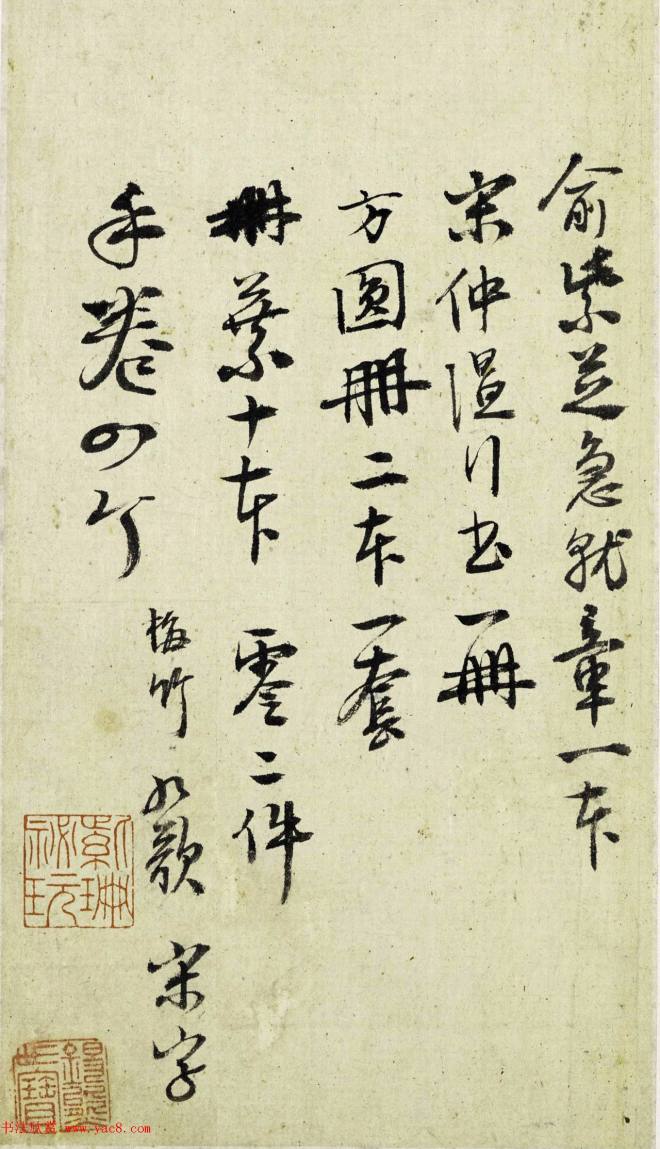 俞紫芝急就章一本
宋仲温行書一冊
方圓冊二本一套
冊葉十本 零二件
手卷四个
梅竹 九歌 宋字
书法欣赏 www.yac8.com